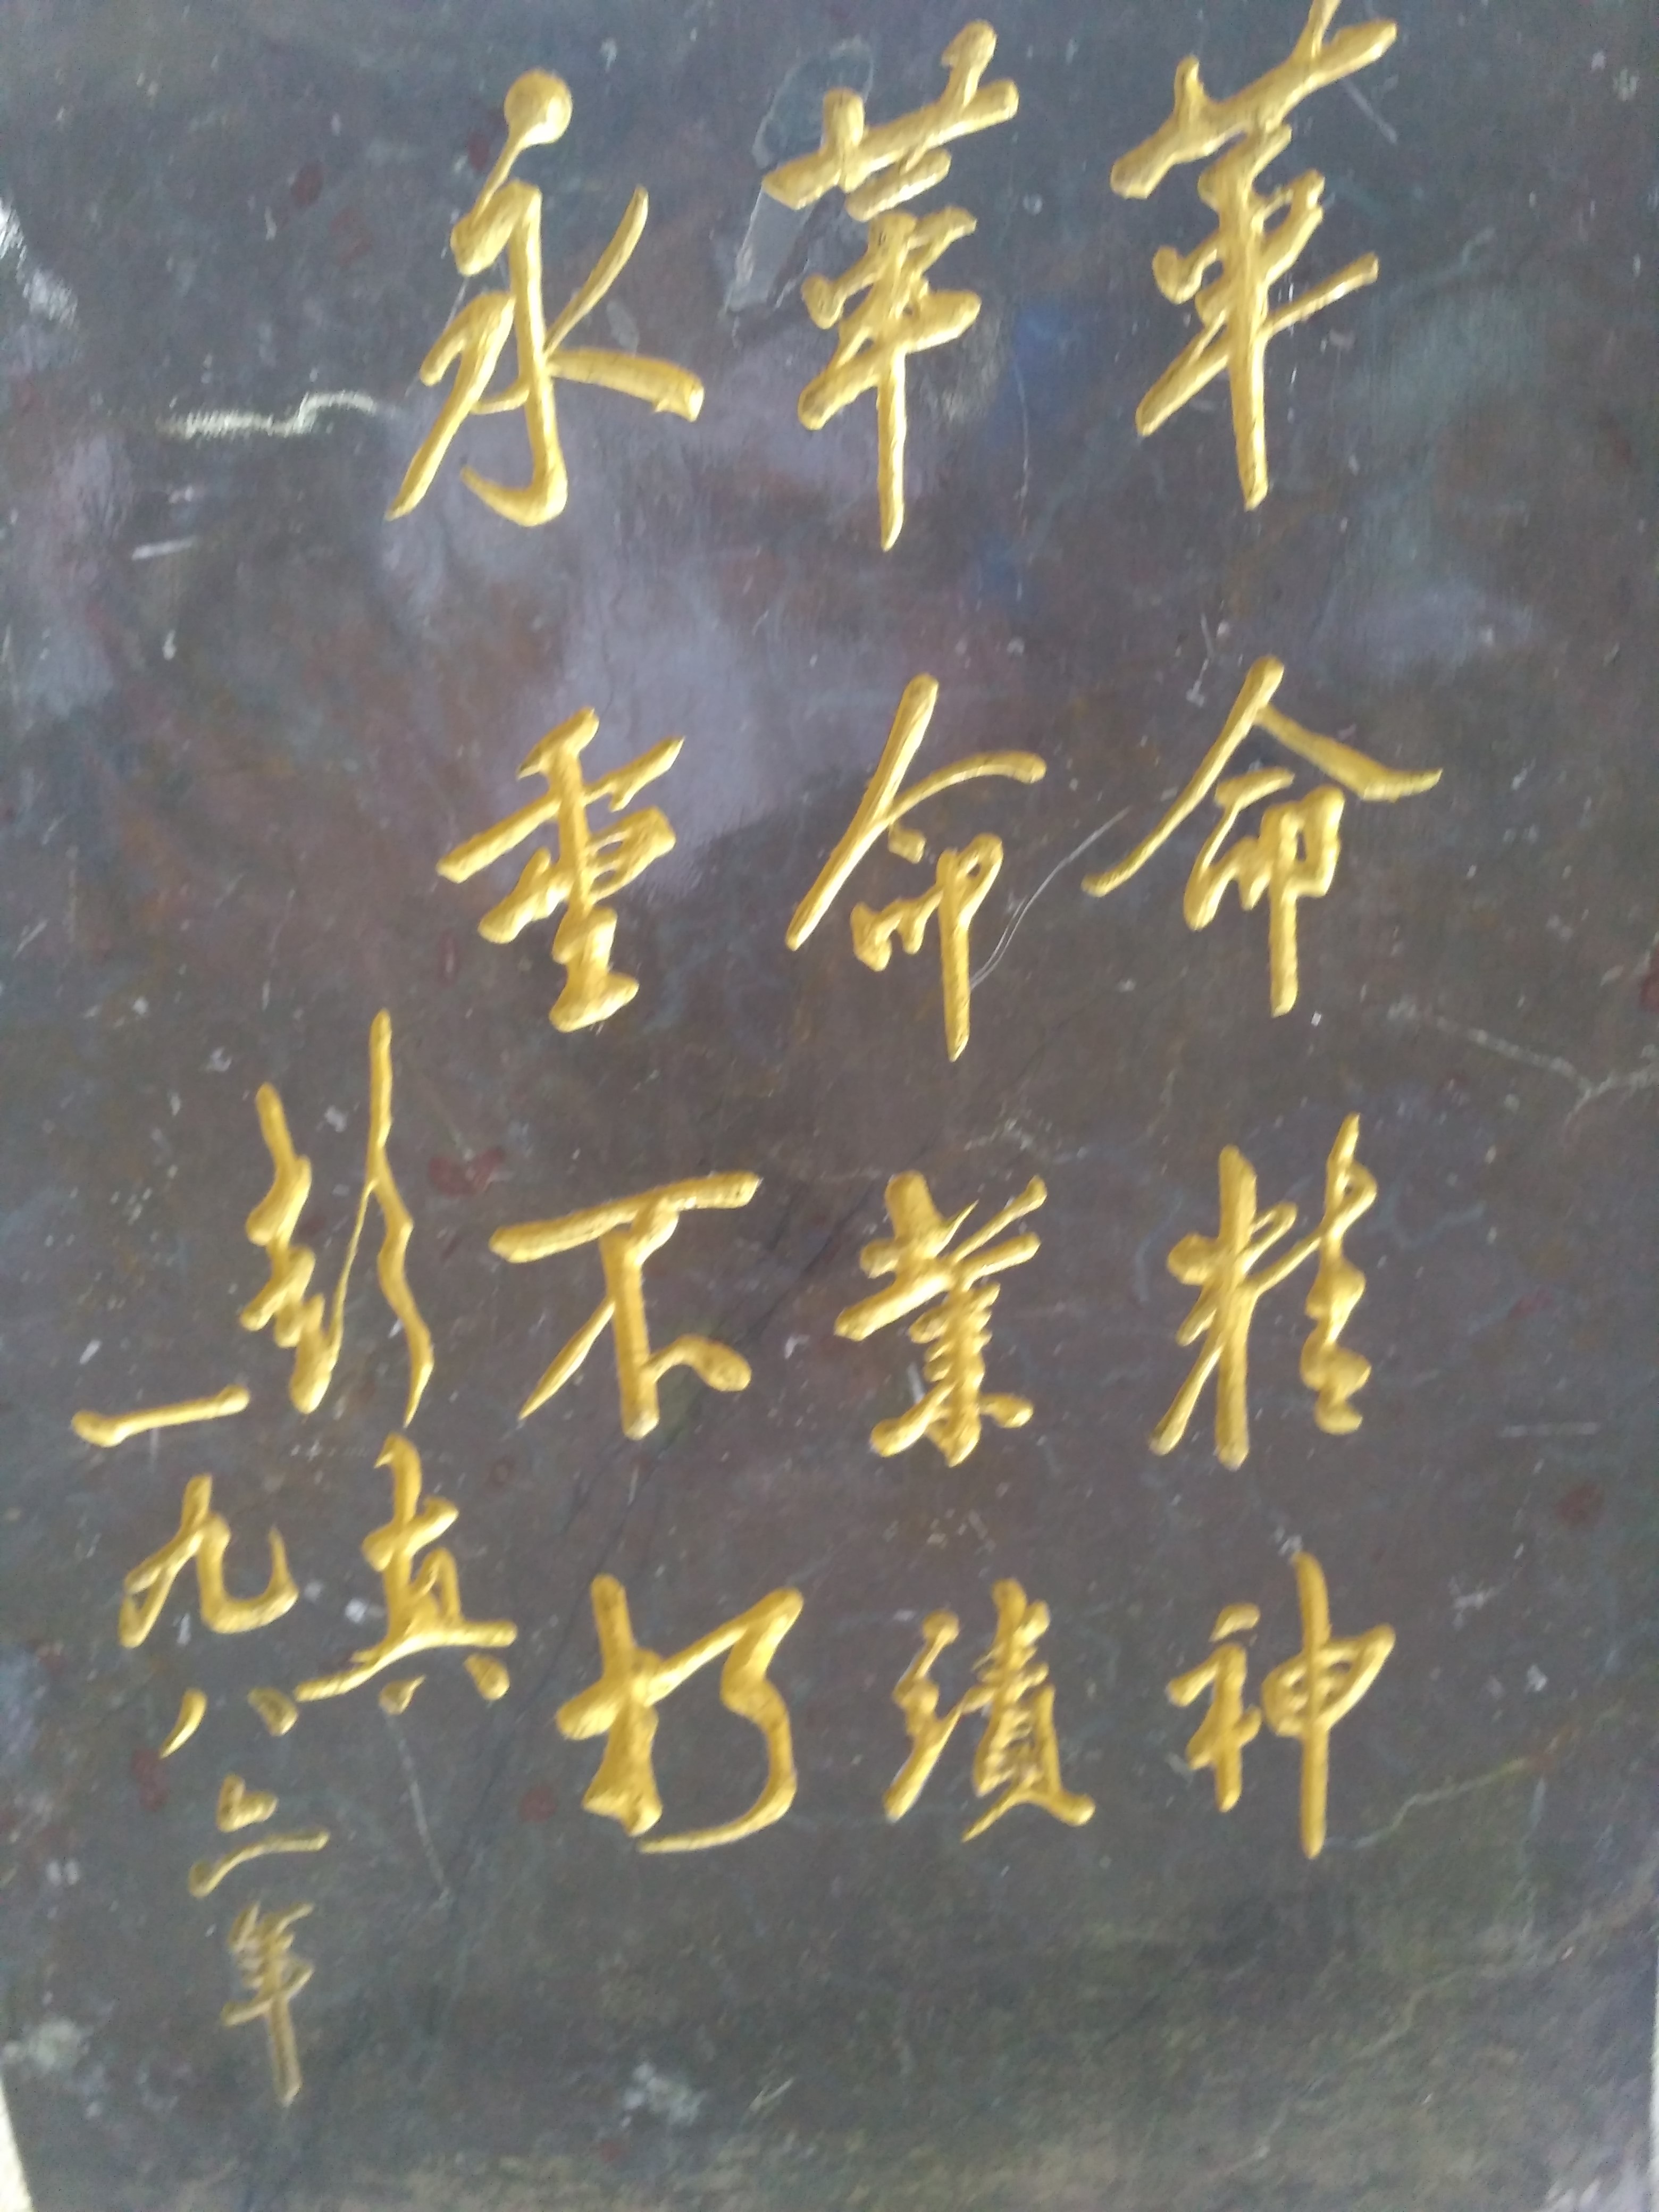 革命精神
革命業績
永垂不朽
彭真
一九八年